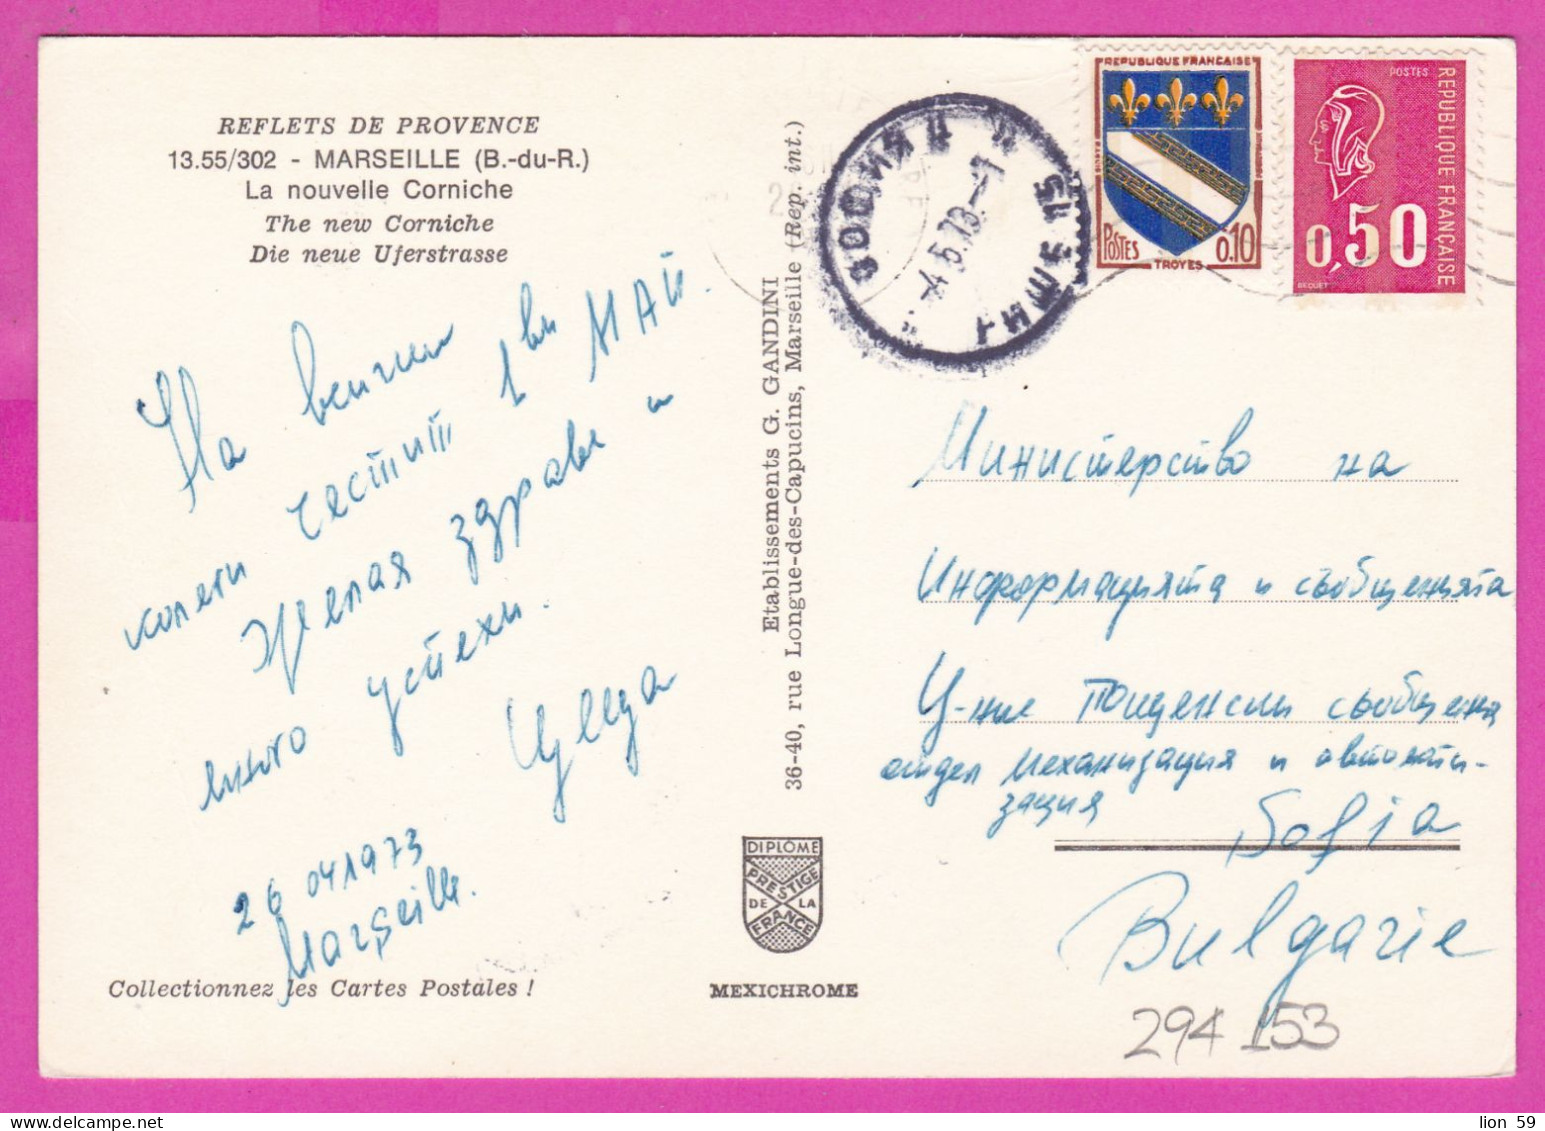 REFLETS DE PROVENCE
13.55/302 - MARSEILLE (B.-du-R.)
La nouvelle Corniche
The new Corniche
Die neue Uferstrasse
На всички
колеги честит 1ви МАЙ.
Желая здраве и
много успехи.
26 04 1973
Marseille.
Collectionnez les Cartes Postales !
Etablissements G. GANDINI
36-40, rue Longue-des-Capucins, Marseille (Rep. int.)
DIPLOME
PRESTIGE
DE LA
FRANCE
MEXICHROME
СОФИЯ
-4.5.73.-7
REPUBLIQUE FRANÇAISE
POSTES
0,10
TROYES
POSTES
REPUBLIQUE FRANÇAISE
0,50
BEQUET
Министерство на
Информацията и съобщенията
У-ние Пощенски съобщения
отдел механизация и автомати-
зация
Sofia
Bulgarie
294153
lion 59